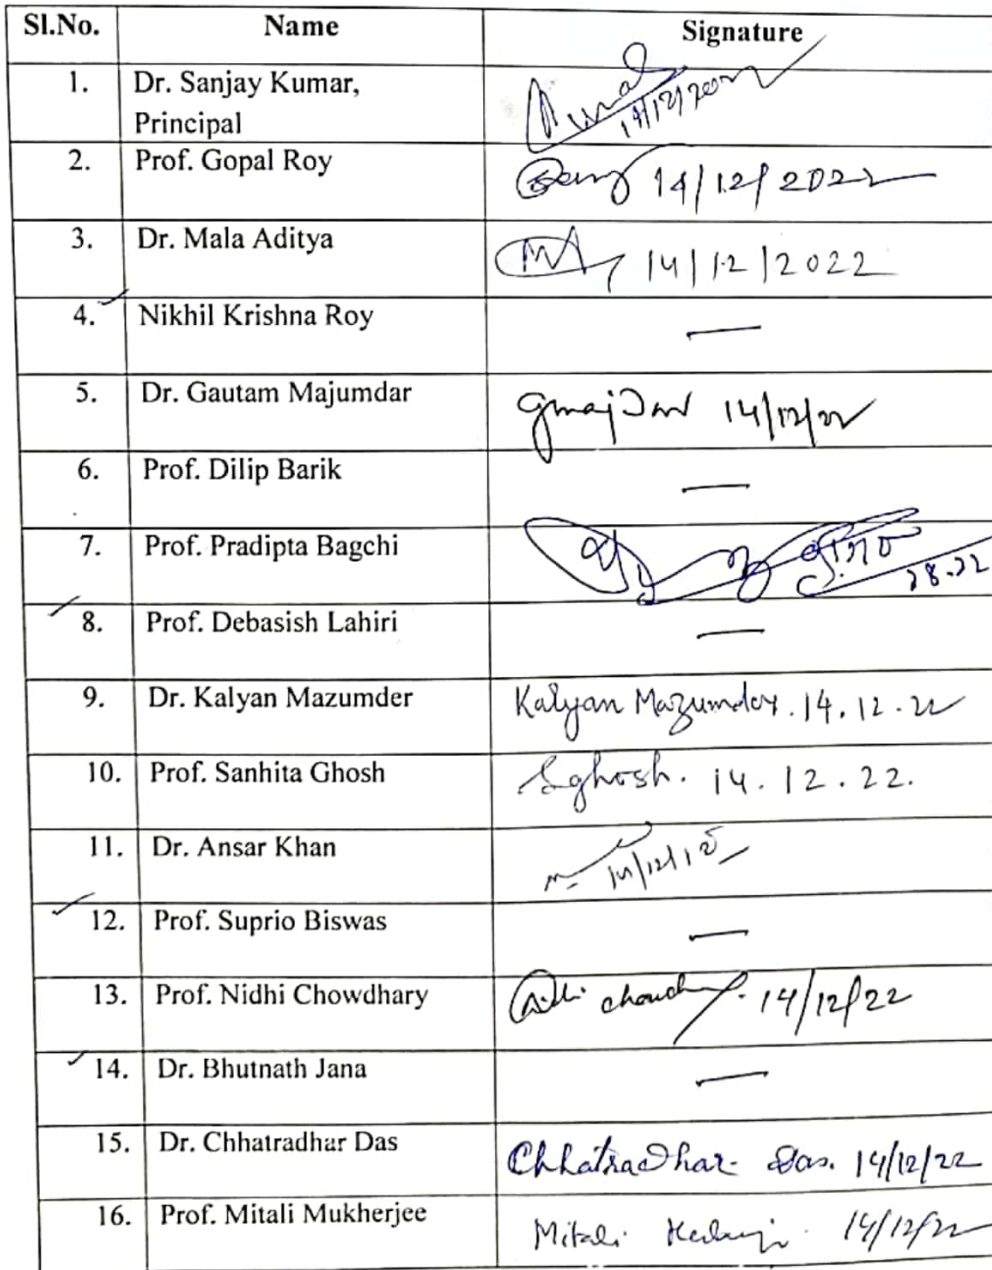 Sl.No. Name Signature
1. Dr. Sanjay Kumar,
Principal 14/12/2022
2. Prof. Gopal Roy 14/12/2022
3. Dr. Mala Aditya 14/12/2022
4. Nikhil Krishna Roy —
5. Dr. Gautam Majumdar 14/12/22
6. Prof. Dilip Barik —
7. Prof. Pradipta Bagchi
8. Prof. Debasish Lahiri —
9. Dr. Kalyan Mazumder Kalyan Mazumder. 14.12.22
10. Prof. Sanhita Ghosh SGhosh. 14.12.22.
11. Dr. Ansar Khan
12. Prof. Suprio Biswas —
13. Prof. Nidhi Chowdhary 14/12/22
14. Dr. Bhutnath Jana —
15. Dr. Chhatradhar Das Chhatradhar Das. 14/12/22
16. Prof. Mitali Mukherjee Mitali 14/12/22